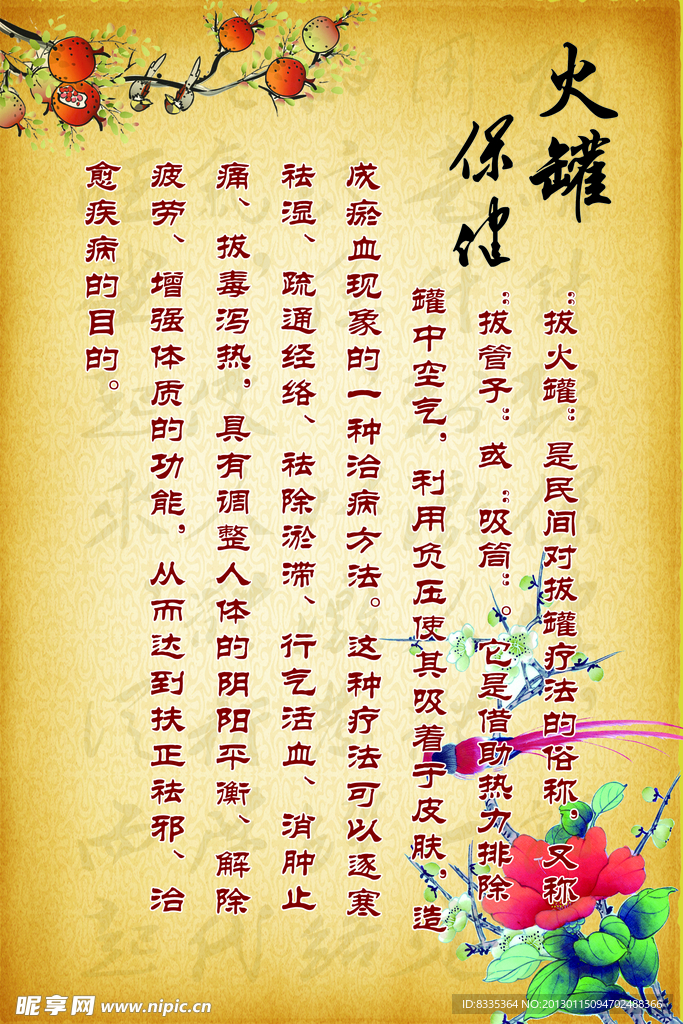 火罐
保健
“拔火罐”是民间对拔罐疗法的俗称，又称
“拔管子”或“吸筒”。它是借助热力排除
罐中空气，利用负压使其吸着于皮肤，造
成瘀血现象的一种治病方法。这种疗法可以逐寒
祛湿、疏通经络、祛除淤滞、行气活血、消肿止
痛、拔毒泻热，具有调整人体的阴阳平衡、解除
疲劳、增强体质的功能，从而达到扶正祛邪、治
愈疾病的目的。
昵享网 www.nipic.cn
ID:8335364 NO:20130115094702468366